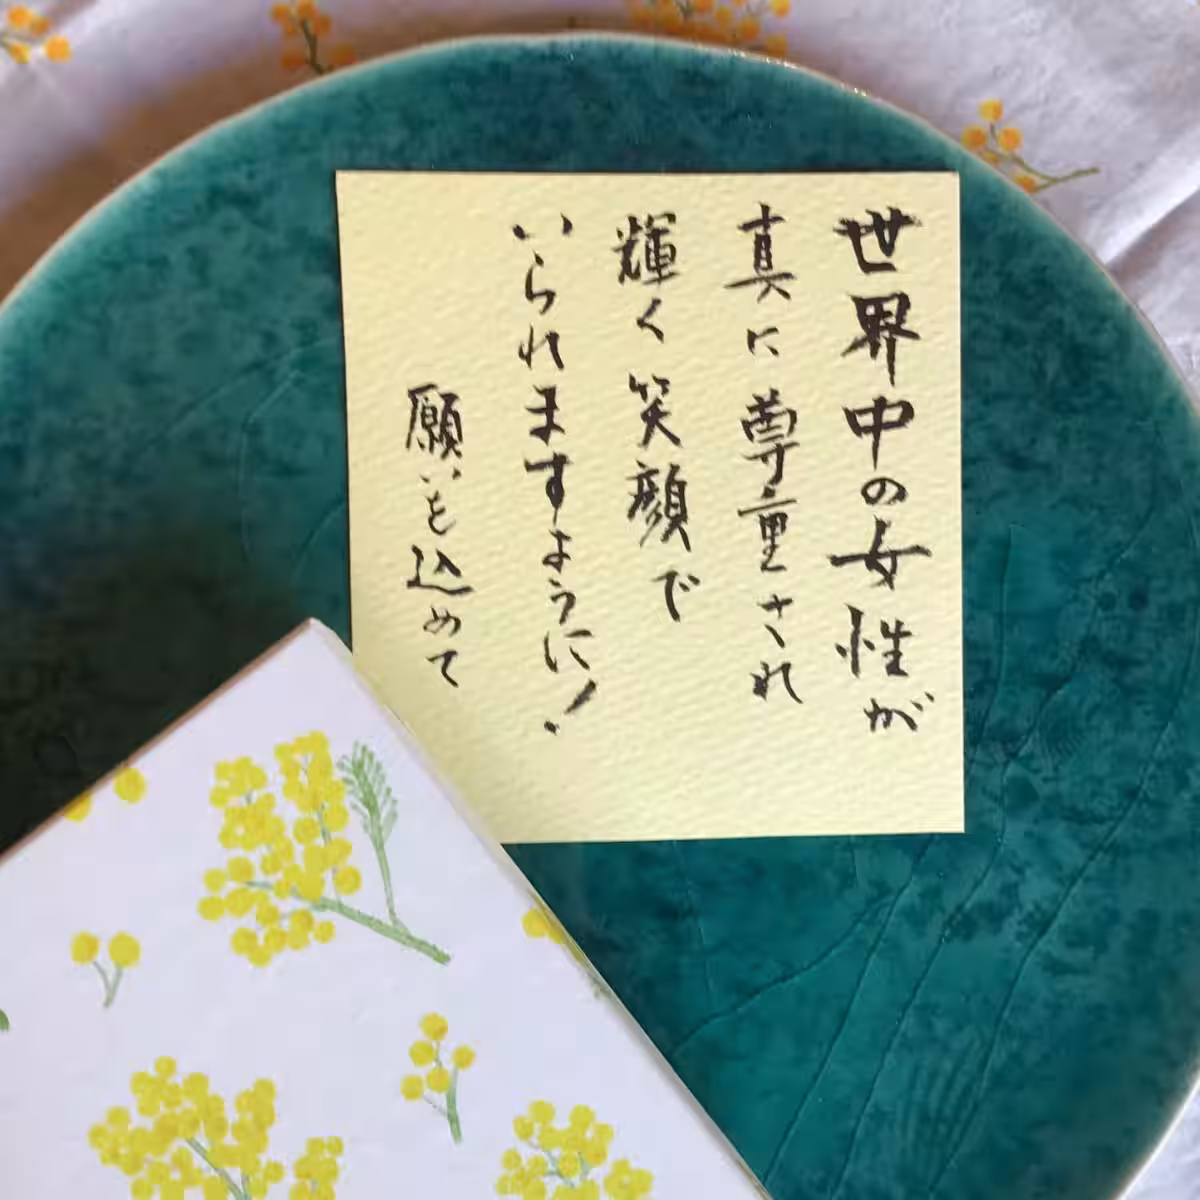 世界中の女性が
真に尊重され
輝く笑顔で
いられますように!
願いを込めて